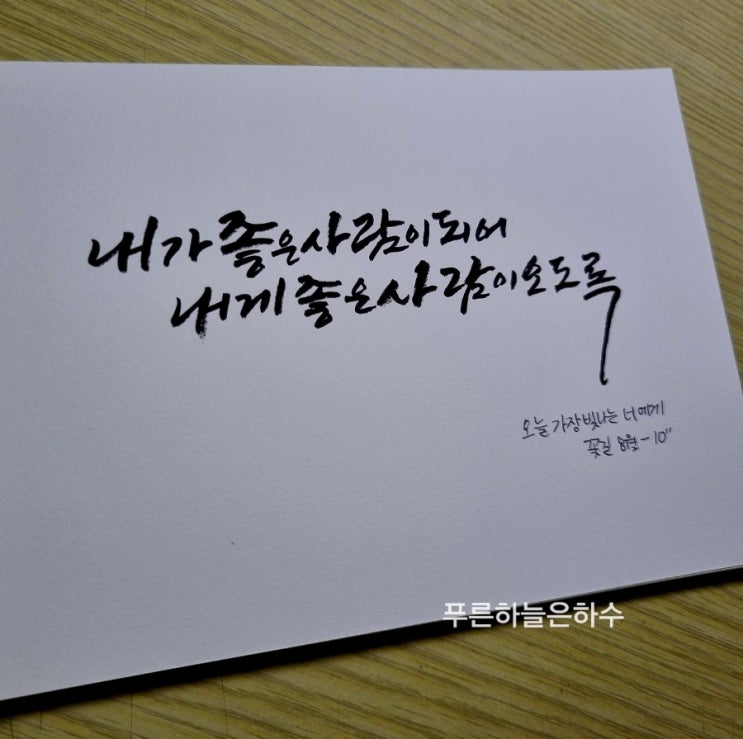 내가 좋은 사람이 되어
내게 좋은 사람이 오도록
오늘 가장 빛나는 너에게
꽃길 8월-10"
푸른하늘은하수